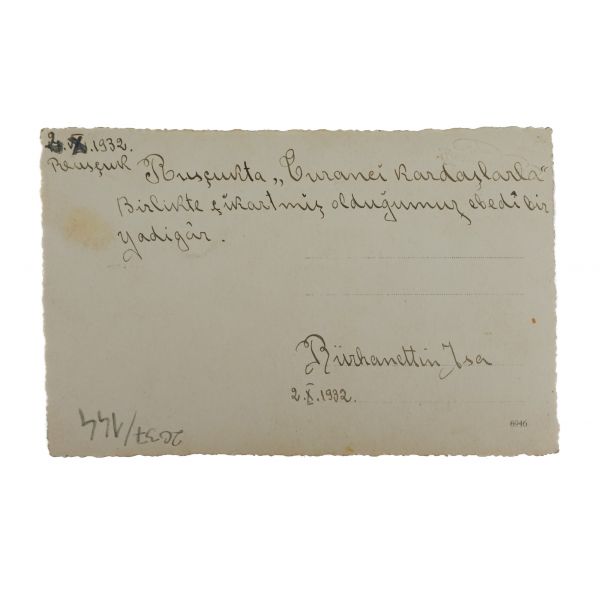 2.X.1932.
Rusçuk
Rusçukta „Turancı kardaşlarla“
Birlikte çıkartmiş olduğumuz ebedî bir
yadigâr.
Bürhanettin Isa
2.X.1932.
6946
2037/144